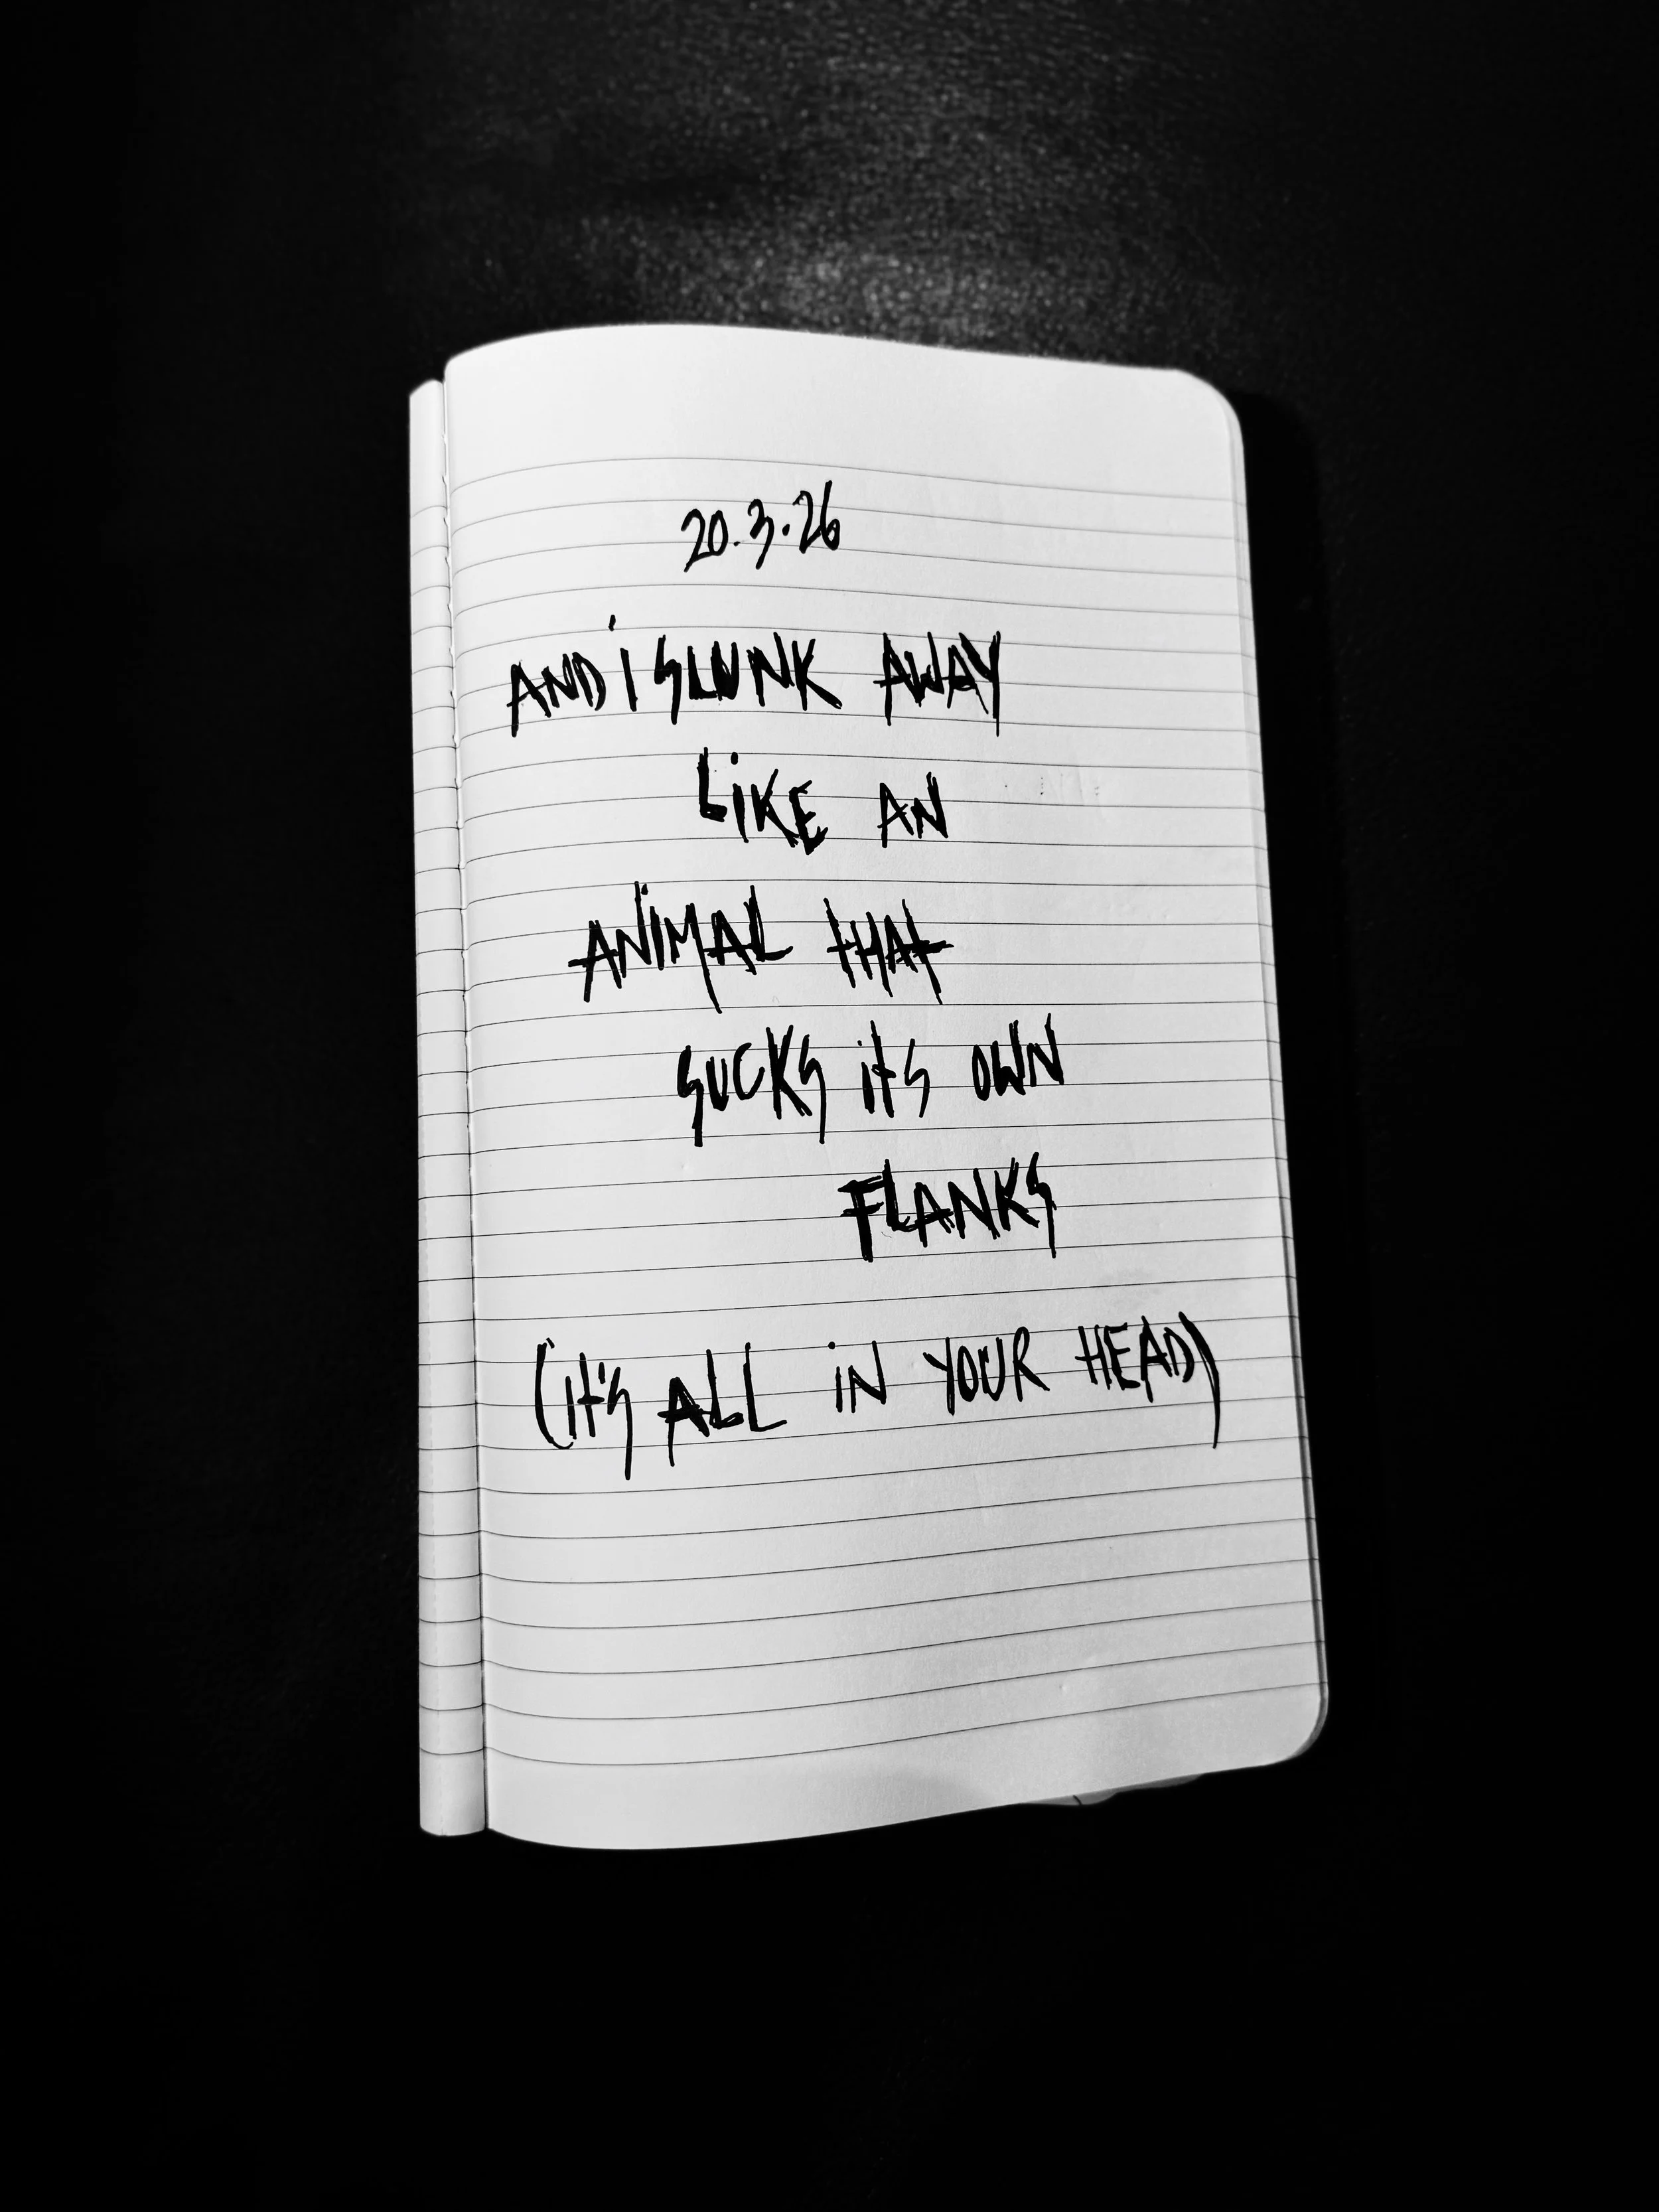 20.3.26
AND i SLUNK AWAY
LiKE AN
ANiMAL tHAt
SUCKS itS OWN
FLANKS
(it'S ALL iN YOUR HEAD)